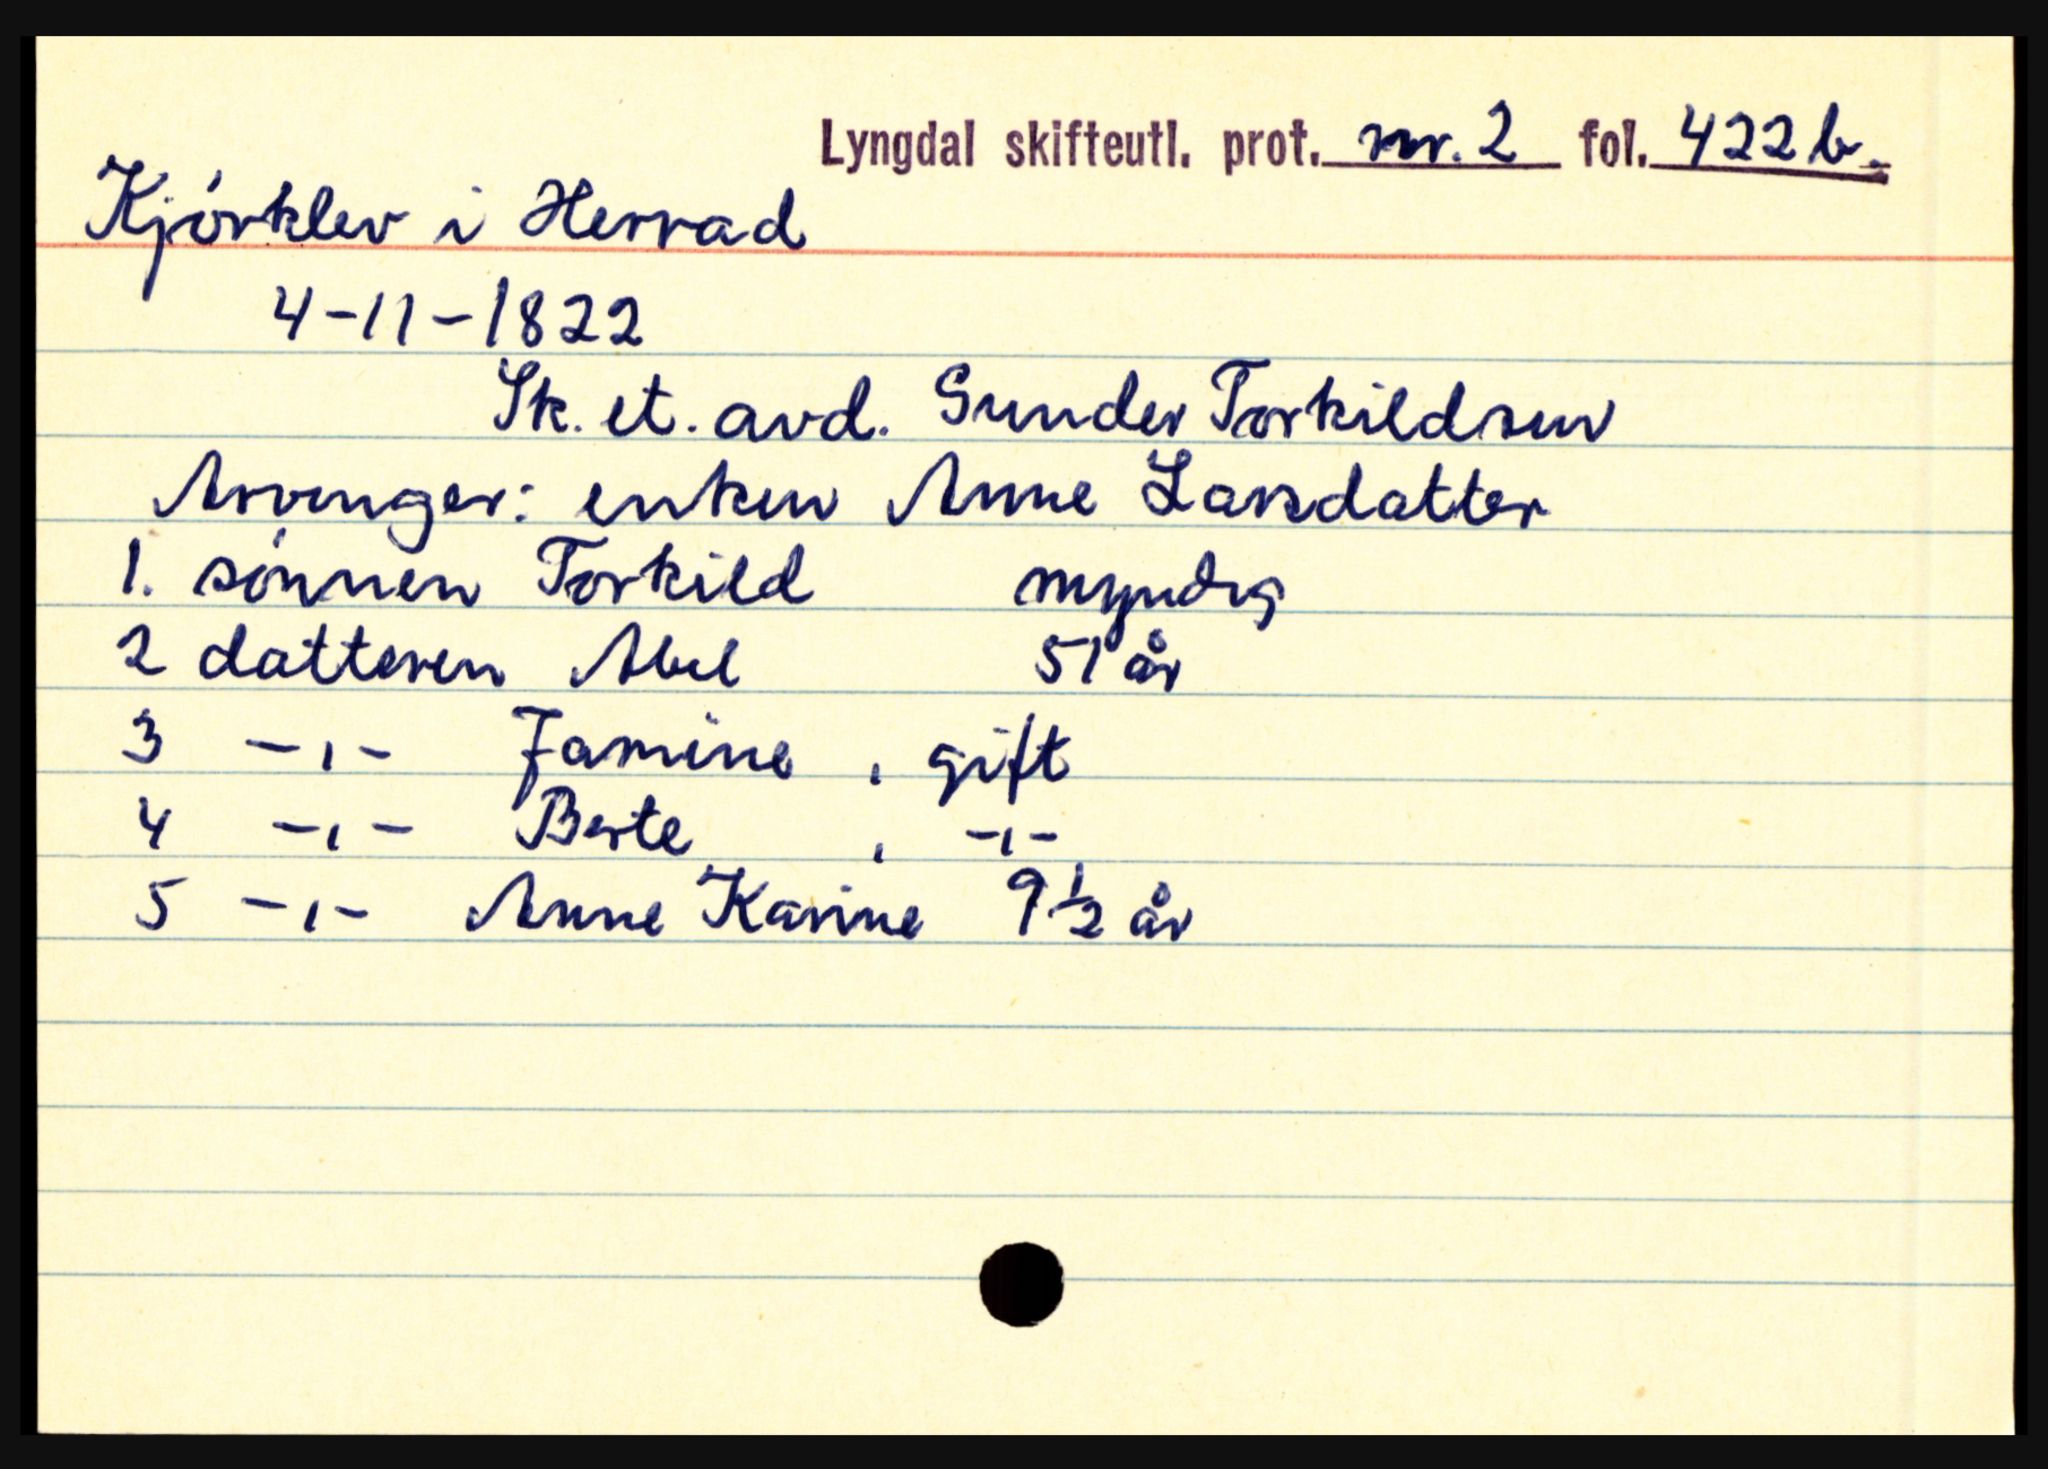 Lyngdal skifteutl. prot. nr. 2 fol. 422 b.
Kjørklev i Herrad
4-11-1822
Sk. et. avd. Gunder Torkildsen
Arvinger: enken Anne Larsdatter
1. sønnen Torkild myndig
2 datteren Abel 51 år
3 -,- Jamine, gift
4 -,- Berte, -,-
5 -,- Anne Karine 9 1/2 år